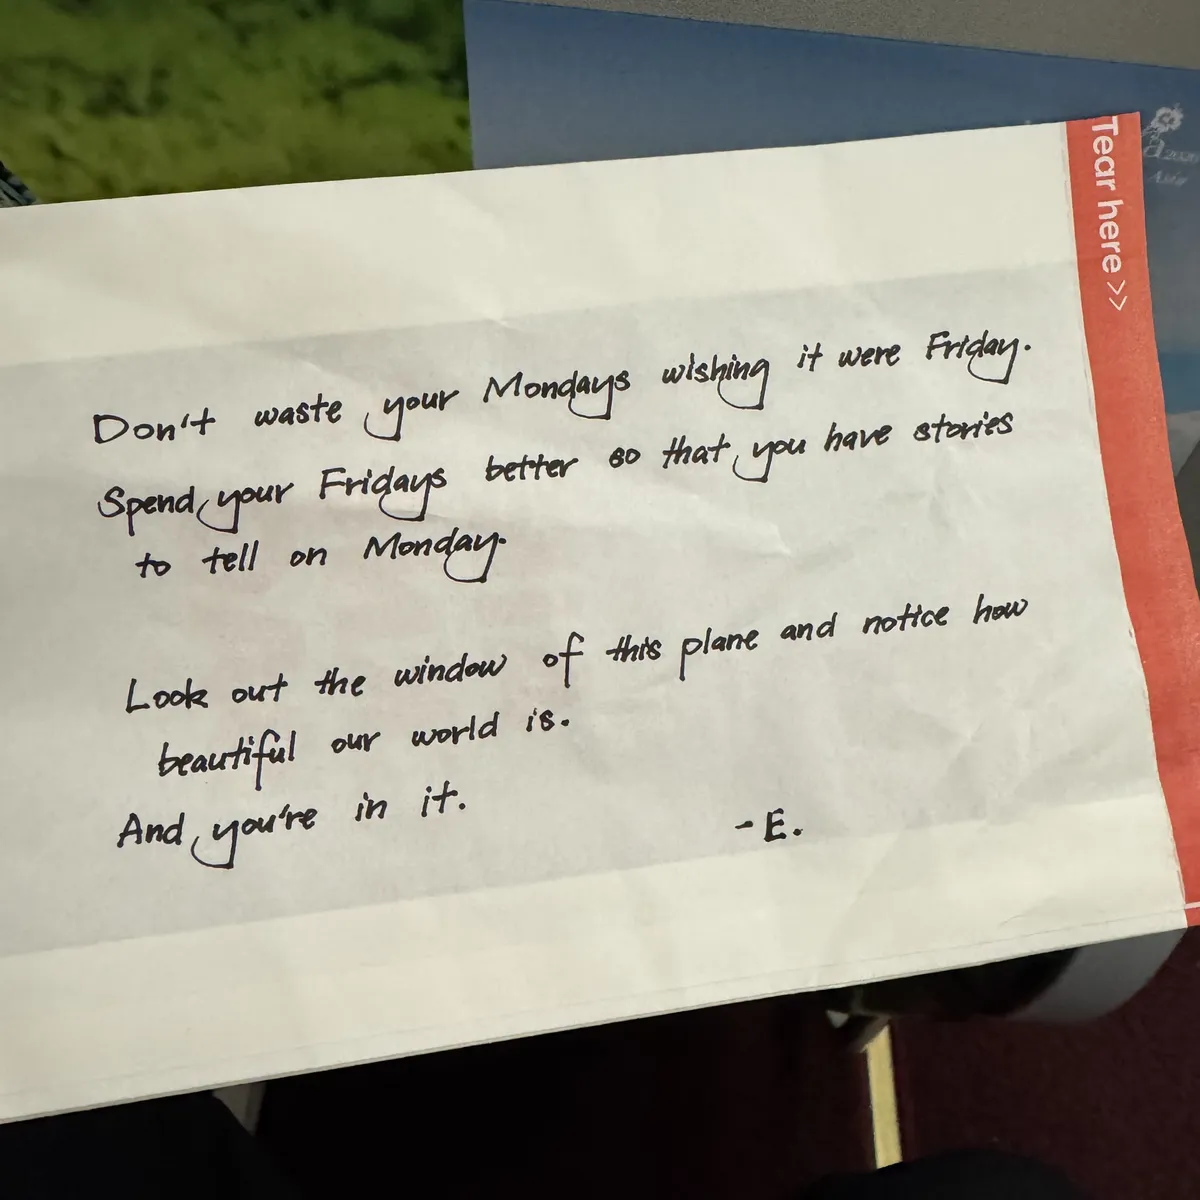 Tear here >>
Don't waste your Mondays wishing it were Friday.
Spend your Fridays better so that you have stories
to tell on Monday.
Look out the window of this plane and notice how
beautiful our world is.
And you're in it.
- E.